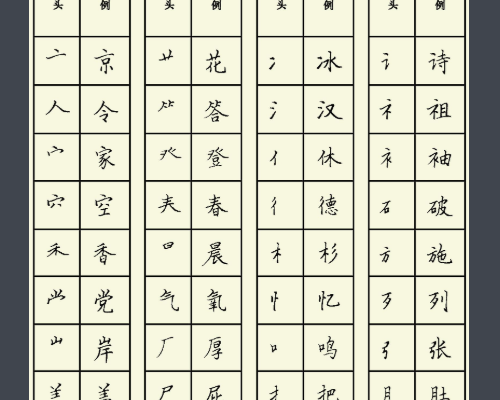 头 例 头 例 头 例 头 例
亠 京 艹 花 冫 冰 讠 诗
人 令 ⺮ 答 氵 汉 礻 祖
宀 家 癶 登 亻 休 衤 袖
穴 空 𡗗 春 彳 德 石 破
禾 香 日 晨 木 杉 方 施
龸 党 气 氧 忄 忆 歹 列
山 岸 厂 厚 口 鸣 弓 张
𦍌 美 尸 屈 扌 把 月 肚